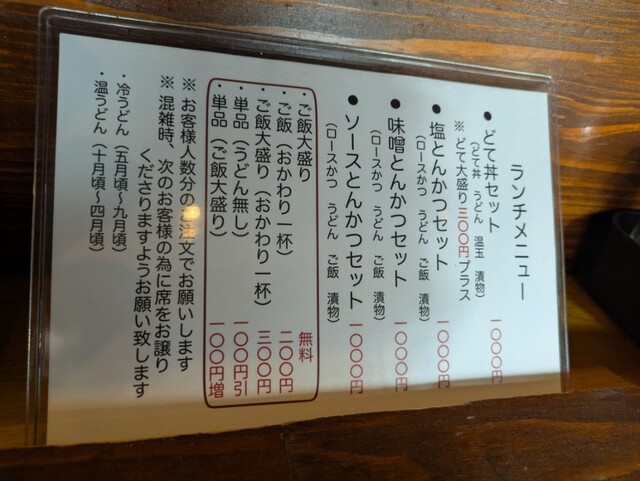 ランチメニュー
● どて丼セット 一〇〇〇円
（どて丼 うどん 温玉 漬物）
※ どて大盛り三〇〇円プラス
● 塩とんかつセット 一〇〇〇円
（ロースかつ うどん ご飯 漬物）
● 味噌とんかつセット 一〇〇〇円
（ロースかつ うどん ご飯 漬物）
● ソースとんかつセット 一〇〇〇円
（ロースかつ うどん ご飯 漬物）
・ご飯大盛り 無料
・ご飯（おかわり一杯） 二〇〇円
・ご飯大盛り（おかわり一杯） 三〇〇円
・単品（うどん無し） 一〇〇円引
・単品（ご飯大盛り） 一〇〇円増
※ お客様人数分のご注文でお願いします
※ 混雑時、次のお客様の為に席をお譲り
くださりますようお願い致します
・冷うどん（五月頃～九月頃）
・温うどん（十月頃～四月頃）